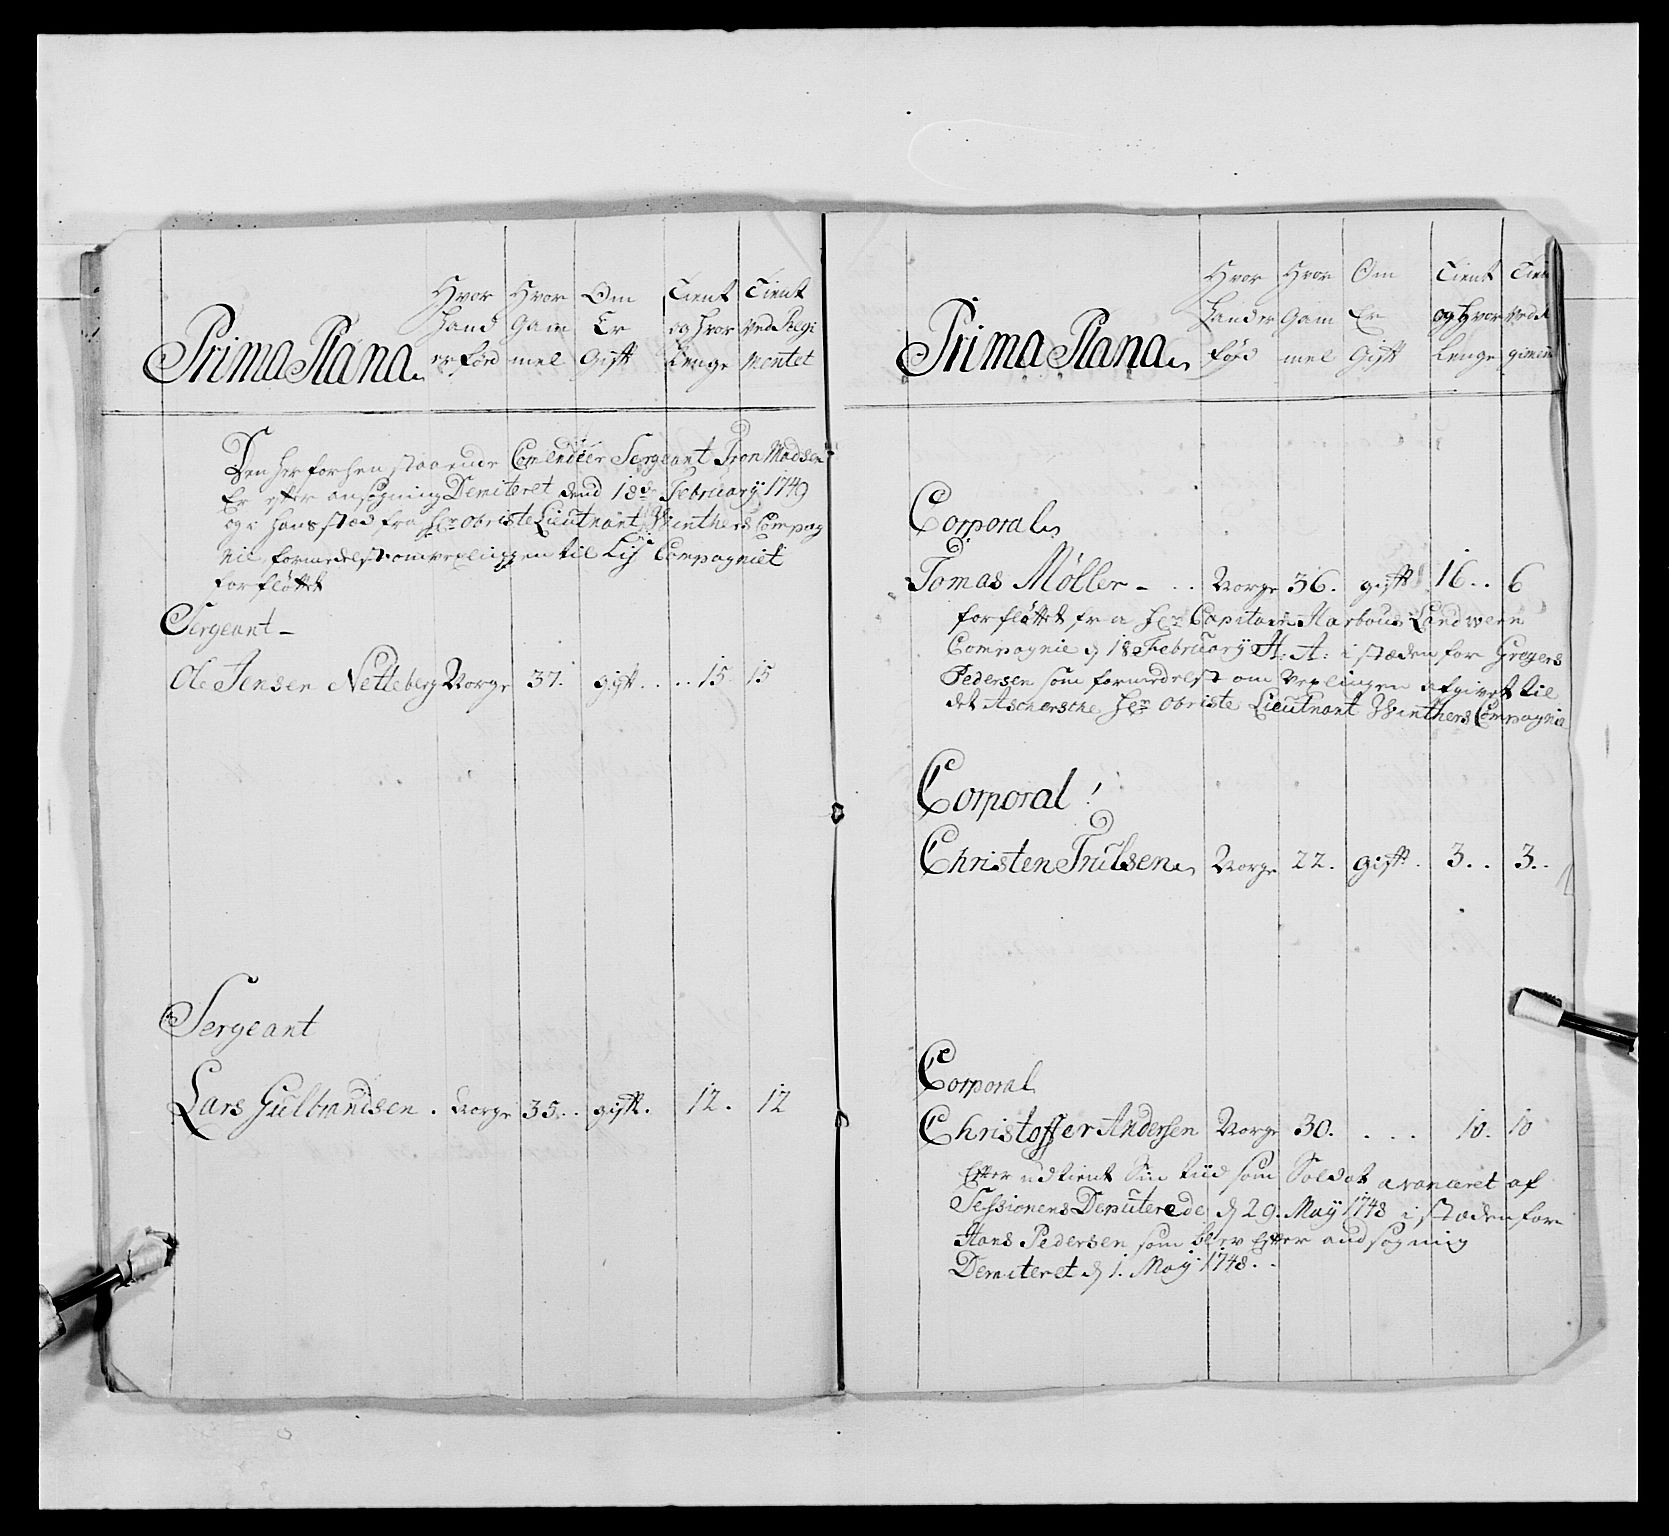 Prima Plana
Hvor Hand er Förd
Hvor Gam mel
Om Er Gift
Tient og hvor Lenge
Tient ved Regi mentet
Den her forhen staaende Comendeer Sergeant Tron Madsen
Er efter ansøgning Demiteret dend 18de February 1749
og i hans stæd fra Hr Obriste Lieutnant Winthers Compag
nie formedelst omvexlingen til Lif Compagniet
forfløttet
Sergeant
Ole Jensen Netteberg Norge 37. gift . . . . 15. 15
Sergeant
Lars Gulbrandsen . Norge 35. . gift. 12. 12
Prima Plana
Hvor Hand er Förd
Hvor Gam mel
Om Er Gift
Tient og Hvor Lenge
Tien ved R gimen
Corporal
Tomas Møller - . . Norge 36. gift 16. . 6
forfløttet fra Hr Capitain Harbous Landwern
Compagnie d 18 February A: A: i stæden for Gregers
Pedersen som formedelst om vexlingen afgivet til
det Aschersche Hr Obriste Lieutnant Winthers Compagnie
Corporal
Christen Trulsen Norge 22. gift. 3. . 3. .
Corporal
Christoffer Andersen Norge 30. . . . 10. 10
Efter udtient Sin tiid som Soldat avanceret af
Sessionens Deputerede d 29. May 1748 i stæden for
Hans Pedersen som blev Efter andsøgning
Demiteret d 1. May 1748. .